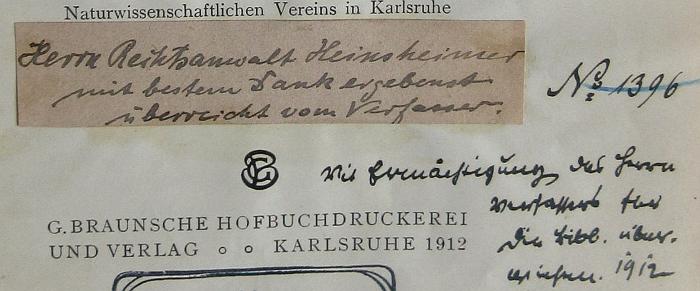 Naturwissenschaftlichen Vereins in Karlsruhe
Herrn Rechtsanwalt Heinsheimer
mit bestem Dank ergebenst
überreicht vom Verfasser.
No. 1396
Mit Ermächtigung des Herrn
Verfassers für
die Bibl. über-
wiesen. 1912
G. BRAUNSCHE HOFBUCHDRUCKEREI
UND VERLAG o o KARLSRUHE 1912